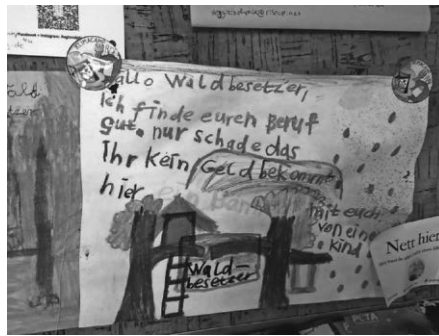 Hallo Waldbesetzer,
Ich finde euren Beruf
gut. nur schade das
Ihr kein Geld bekommt
hier
mit euch
von ein
Kind
Wald-
besetzer
Nett hier
PETA